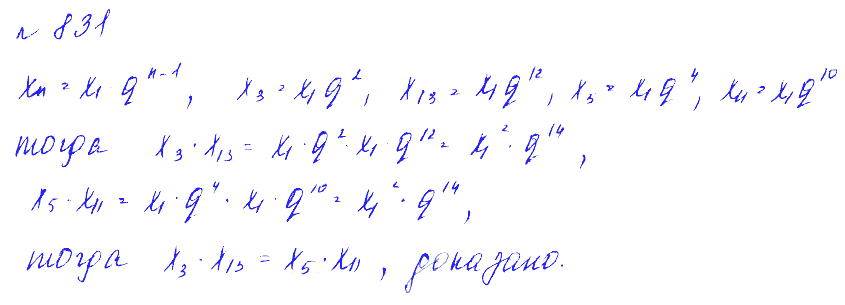 № 831
xₙ = x₁ qⁿ⁻¹, x₃ = x₁q², x₁₃ = x₁q¹², x₅ = x₁q⁴, x₁₁ = x₁q¹⁰
тогда x₃ · x₁₃ = x₁ · q² · x₁ · q¹² = x₁² · q¹⁴,
x₅ · x₁₁ = x₁ · q⁴ · x₁ · q¹⁰ = x₁² · q¹⁴,
тогда x₃ · x₁₃ = x₅ · x₁₁, доказано.